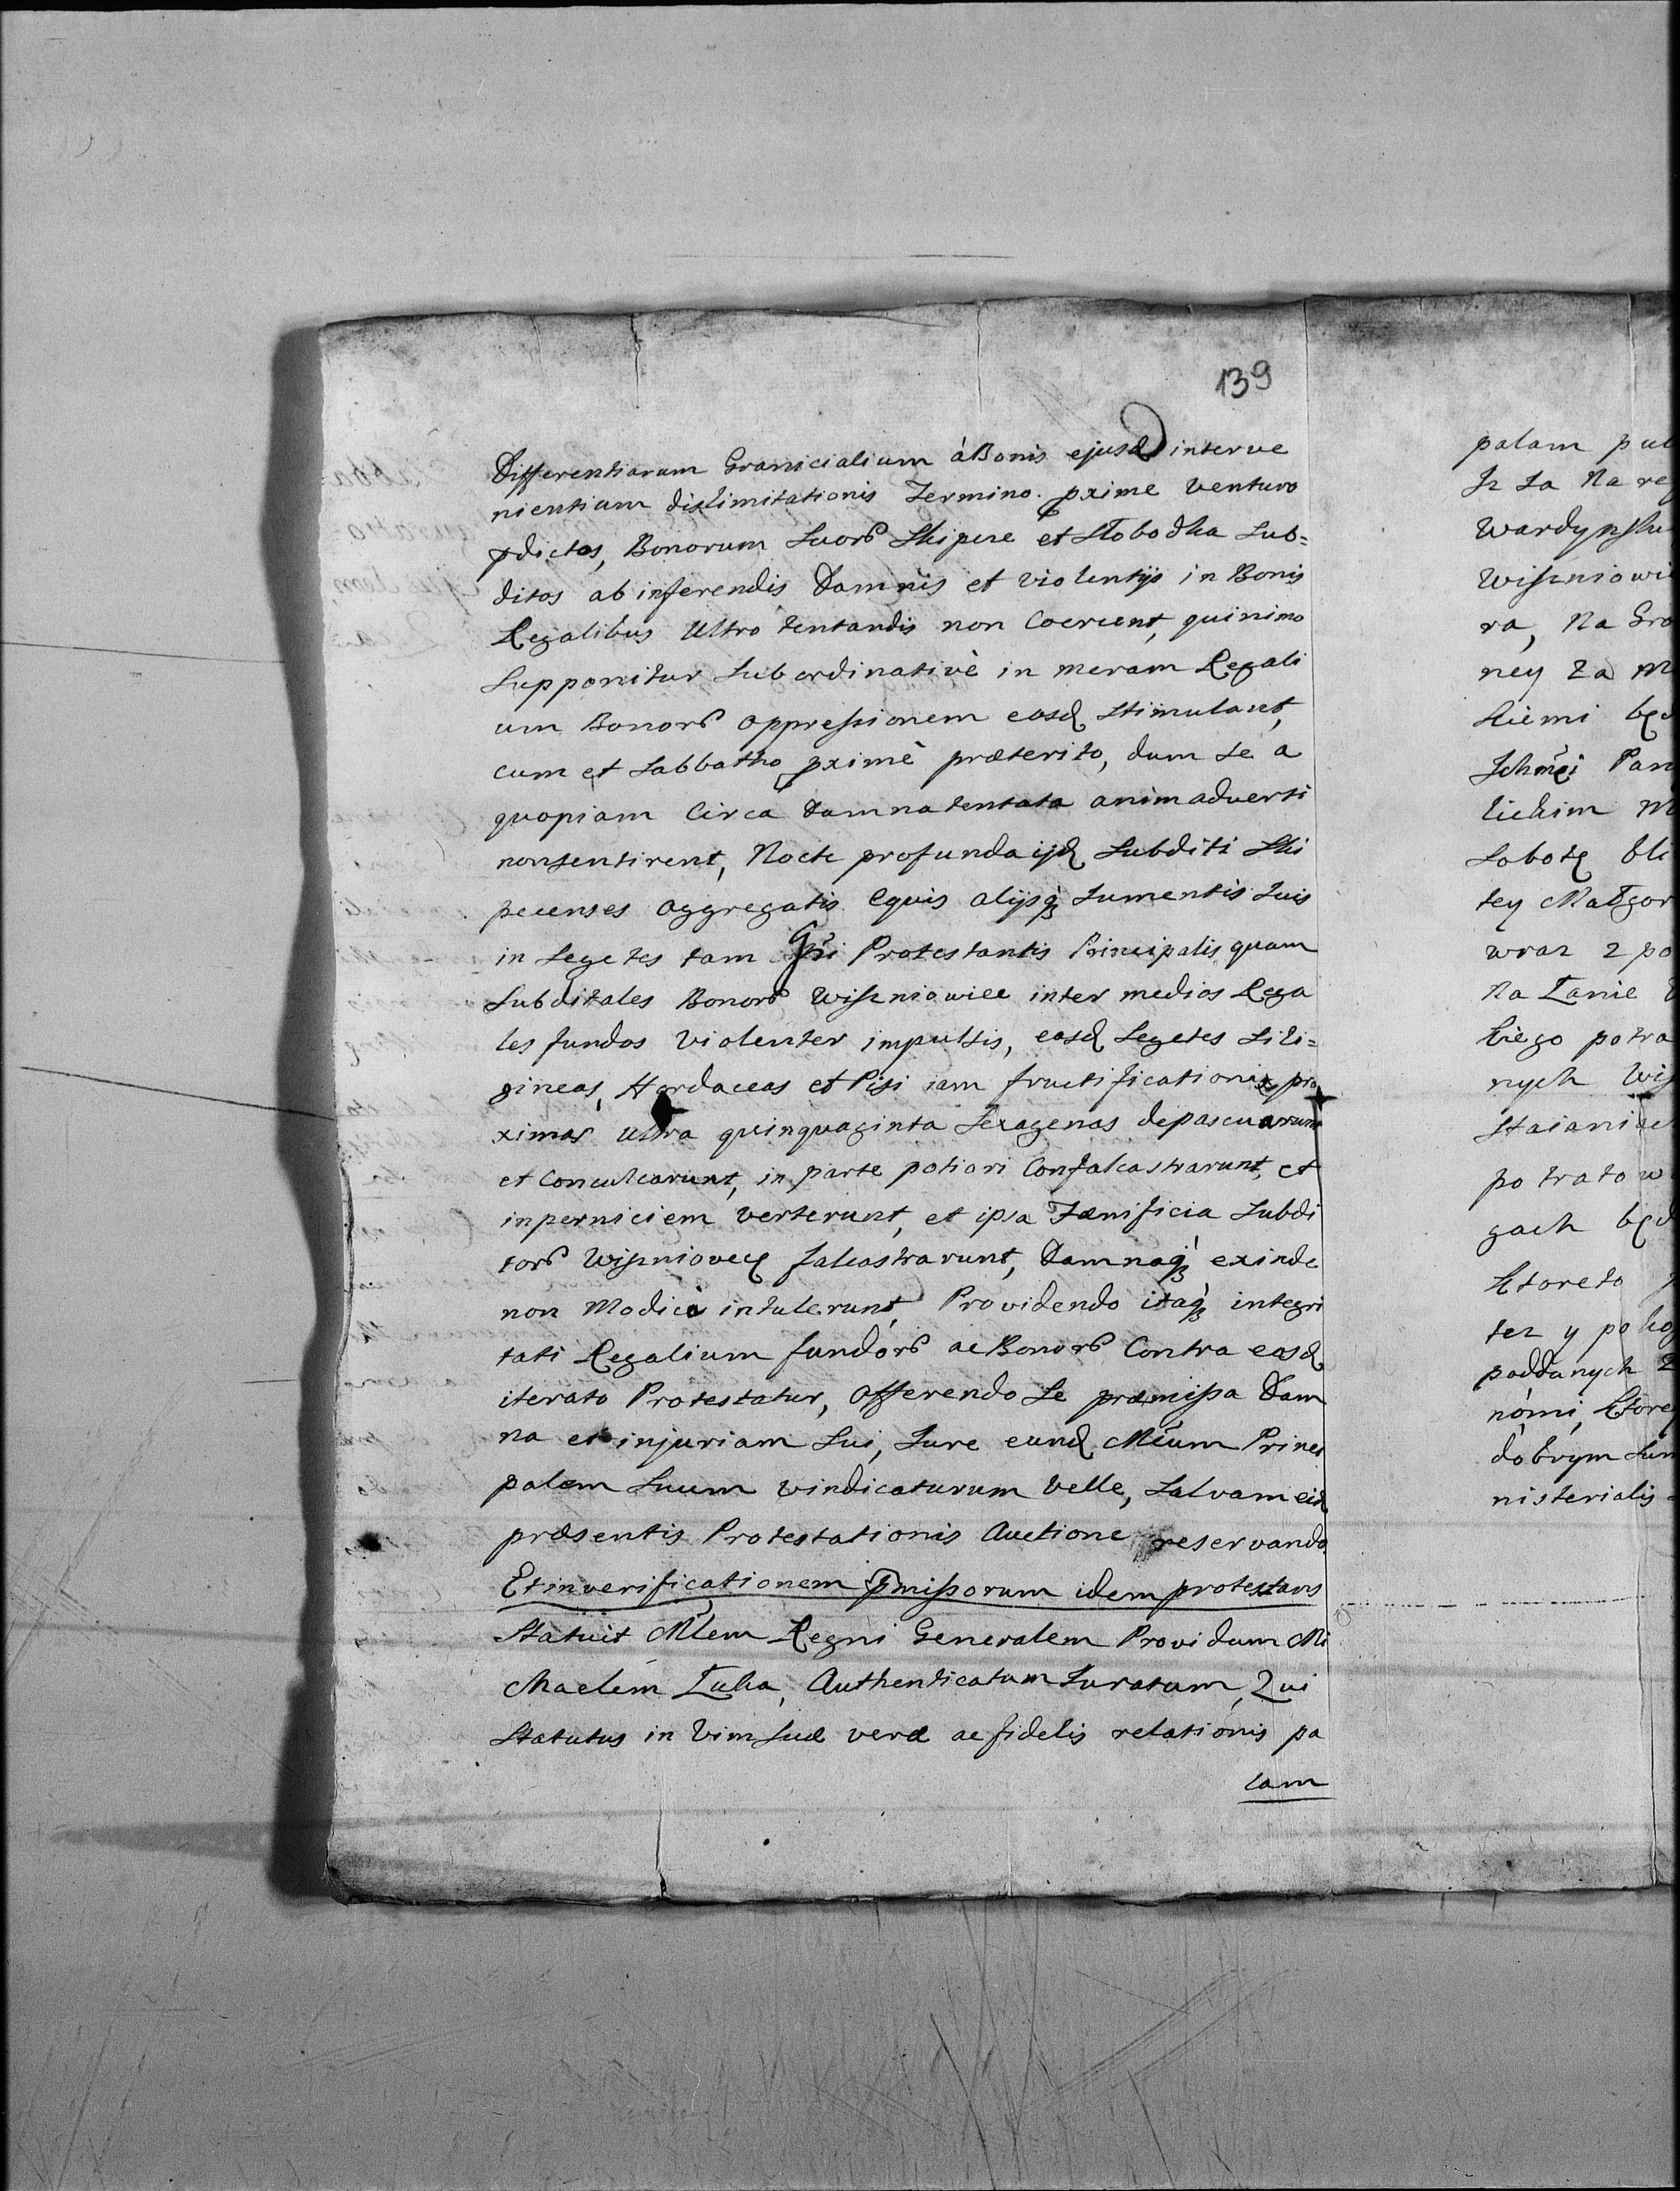 139
Differentiarum Granicialium à Bonis ejusd interve
nientium dislimitationis Termino pxime venturo
pdictos, Bonorum Suorb Skipcze et Słobodka Sub=
ditos ab inferendis Damnis et violentijs in Bonis
Regalibus Ultro tentandis non Coercent, quinimo
Supponitur Subordinativè in meram Regali
um Bonorb oppressionem eosd stimulant,
cum et Sabbatho pximè præterito, dum se a
quopiam Circa Damna tentata animadverti
non sentirent, Nocte profunda ijd Subditi Ski
pecenses aggregatis Equis alijsq Jumentis Suis
in Segetes tam Gsi Protestantis Principalis quam
Subditales Bonorb Wiszniowiec inter medios Rega
les fundos violenter impulsis, easd Segetes Sili=
gineas, Hordaceas et Pisi iam fructificationis pro
ximas Ultra quinquaginta Sexagenas depascuarunt
et Conculcarunt, in parte potiori Confalcastrarunt, et
in perniciem verterunt, et ipsa Fænificia Subdi
torb Wiszniovec falcastrarunt, Damnaq exinde
non Modica intulerunt, Providendo itaq integri
tati Regalium fundorb ac Bonorb Contra eosd
iterato Protestatur, Offerendo Se præmissa Dam
na et injuriam Sui, Jure eund Mcum Princi
palem Suum vindicaturum velle, Salvam eid
præsentis Protestationis Auctione reservando.
Et in verificationem pmissorum idem protestans
Statuit Mlem Regni Generalem Providum Mi
chaelem Łuka, Authenticatum Juratum, Qui
Statutus in Vim Suæ veræ ac fidelis relationis pa
lam
palam pub
Jz Ja Na re
Wardynsku
Wiszniowi
ra, Na Gro
ney Za M
skiemi bę
Jchmci Pan
lickim M
Sobotę bli
tey Małgor
wraz z po
Na Łanie
kiego potra
nych Wis
Staianiach
potratow
gach będ
Ktoreto
tez y poko
poddanych Z
nomi, Ktore
dobrym Sum
nisterialis